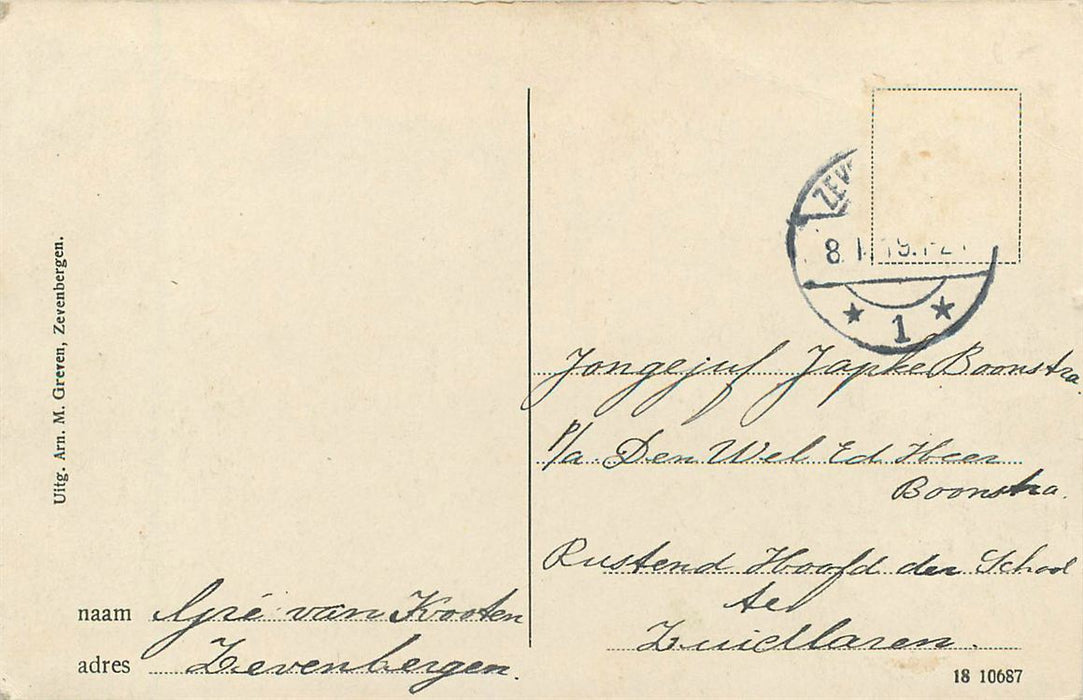 Uitg. Arn. M. Greven, Zevenbergen.
naam van Kooten
adres Zevenbergen.
ZEV
8. 1. 19. 1-2
1
Jongejuf Japke Boonstra.
p/a. Den Wel Ed Heer
Boonstra.
Rustend Hoofd der School
te
Zuidlaren.
18 10687